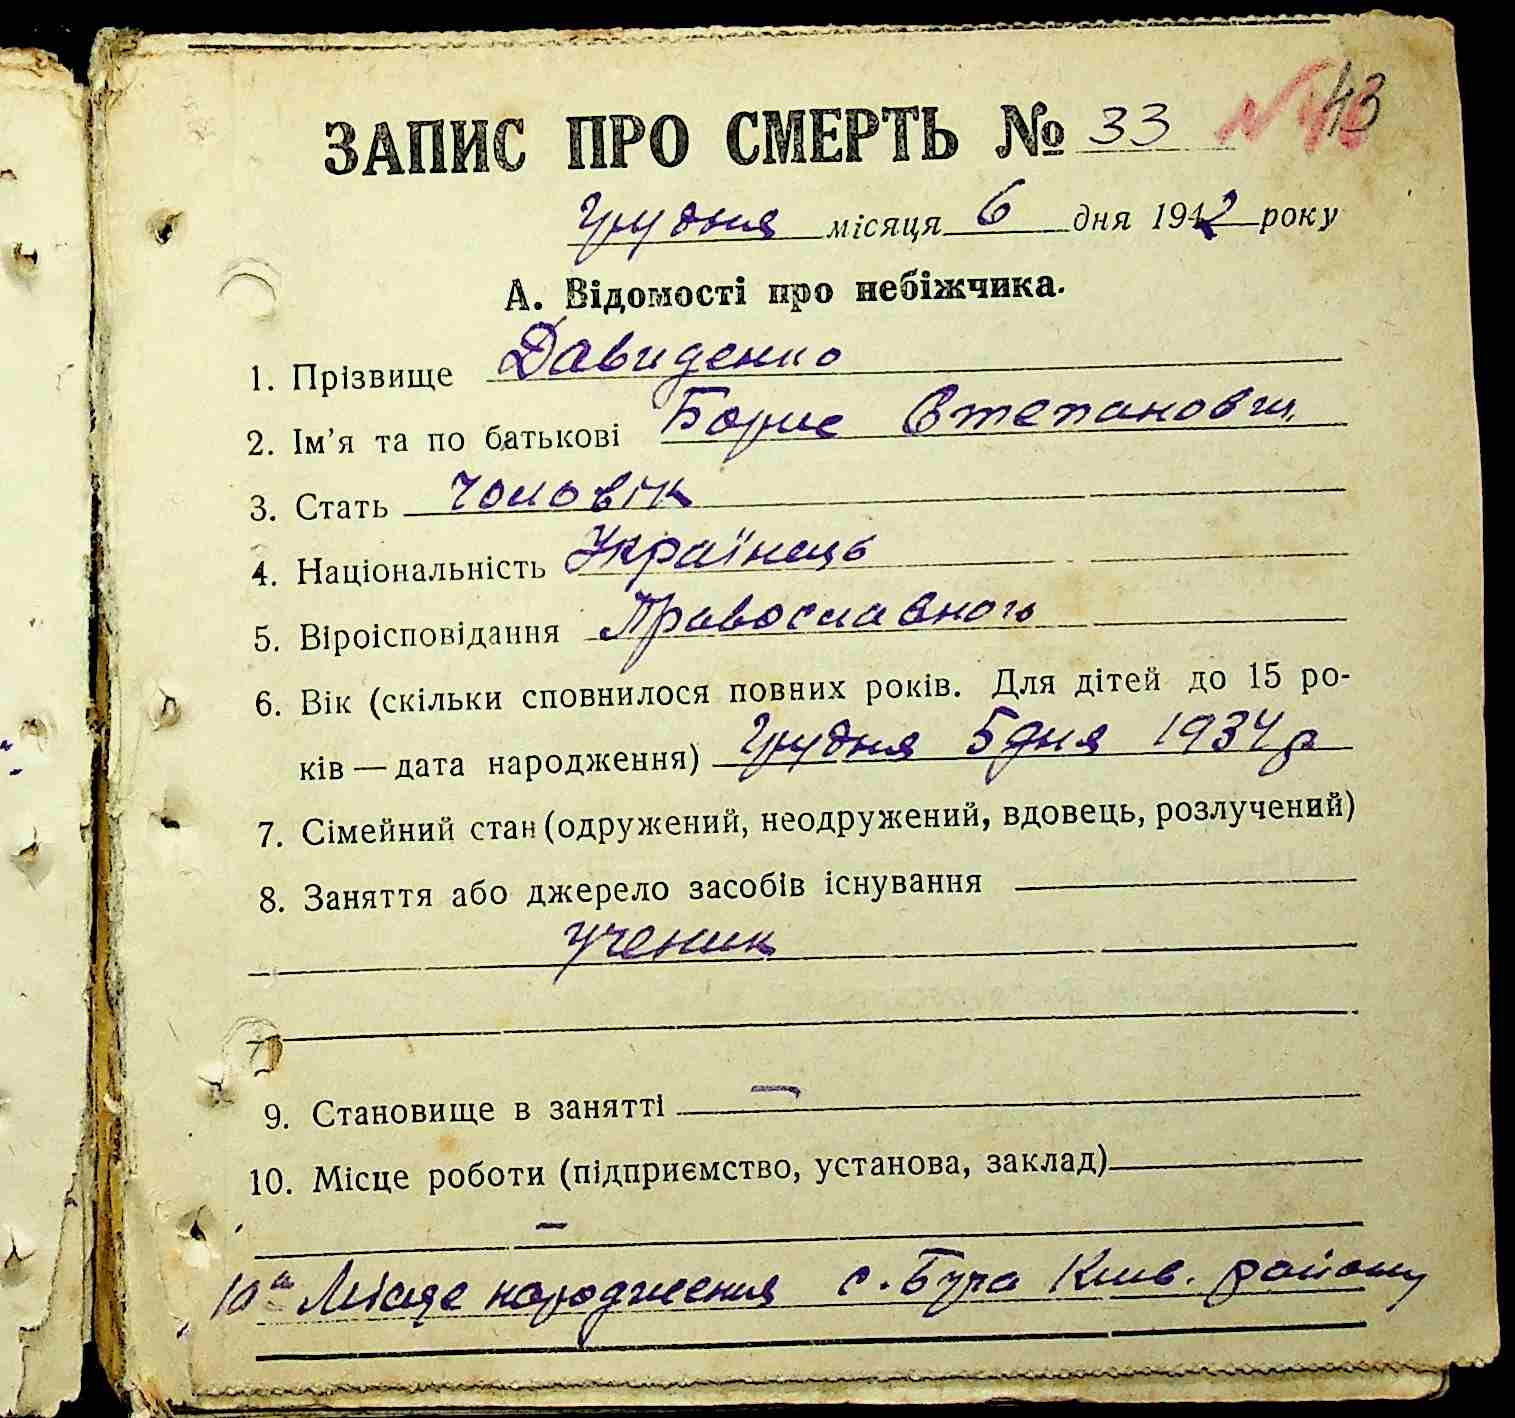 43
ЗАПИС ПРО СМЕРТЬ № 33
Грудня місяця 6 дня 1942 року
А. Відомості про небіжчика.
1. Прізвище Давиденко
2. Ім'я та по батькові Борис Степанович
3. Стать чоловік
4. Національність Українець
5. Віроісповідання Православного
6. Вік (скільки сповнилося повних років. Для дітей до 15 ро-
ків — дата народження) Грудня 5 дня 1934 р
7. Сімейний стан (одружений, неодружений, вдовець, розлучений)
8. Заняття або джерело засобів існування
ученик
9. Становище в занятті —
10. Місце роботи (підприємство, установа, заклад)
—
10а Місце народження с. Буча Київ. району